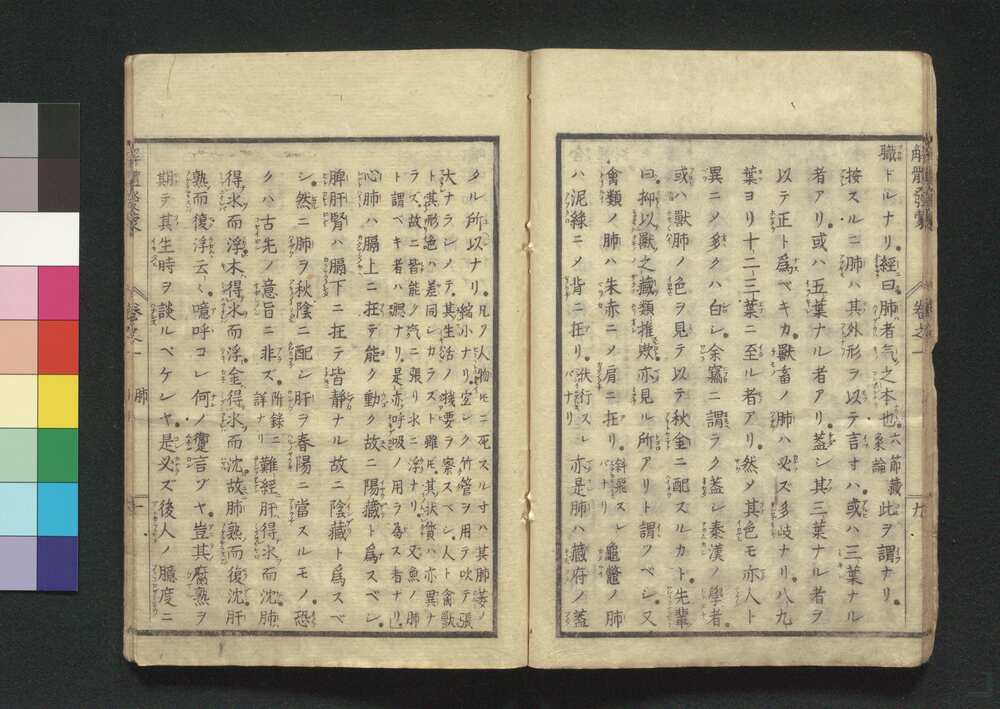 職トルナリ。經曰肺者气之本也。六節藏象論此ヲ謂ナリ。
按スルニ肺ハ其外形ヲ以テ言すハ。或ハ三葉ナル
者アリ。或ハ五葉ナル者アリ。蓋シ其三葉ナル者ヲ
以テ正ト爲ベキカ。獸畜ノ肺ハ必ズ多岐ナリ。八九
葉ヨリ十二三葉ニ至ル者アリ。然ノ其色モ亦人ト
異ニメ多クハ白シ。余竊ニ謂ラク蓋シ秦漢ノ學者。
或ハ獸肺ノ色ヲ見テ以テ秋金ニ配スルカト。先輩
曰抑以獸之藏類推歟亦見ル所アリト謂フベシ。又
禽類ノ肺ハ朱赤ニメ肩ニ在リ。斜飛スレバナリ 龜鼈ノ肺
ハ泥綠ニメ背ニ在リ。伏行スレバナリ 亦是肺ハ藏府ノ蓋
タル所以ナリ。凡ク人物ニ死スル寸ハ其肺萎ノ縮小ナリ。空シク竹管ヲ用テ吹テ張
大ナラシメテ。其生活ノ機要ヲ察スベシ。人ト禽獸ト其形色ハ差同シカラスト雖モ。其状質ハ亦異ナ
ラズ。故ニ皆能ク汽ニ張リ水ニ滃ナリ。又魚ノ肺ト謂ベキ者ハ腮ナリ。是亦呼吸ノ用ヲ爲ス者ナリ
心肺ハ膈上ニ在テ能ク動ク故ニ陽藏ト爲スベシ。
脾肝腎ハ膈下ニ在テ皆靜ナル故ニ陰藏ト爲スベ
シ。然ニ肺ヲ秋陰ニ配シ肝ヲ春陽ニ當スルモノ恐
クハ古先ノ意旨ニ非ズ。附録ニ詳ナリ 難經肝得水而沈肺
得水而浮木得水而浮金得水而沈故肺熟而復沈肝
熟而復浮云々噫呼コレ何ノ躗言ゾヤ。豈其腐熟ヲ
期テ其生時ヲ談ルベケンヤ。是必ズ後人ノ臆度ニ
解體發蒙
卷之一
九
卷之一
肺
十